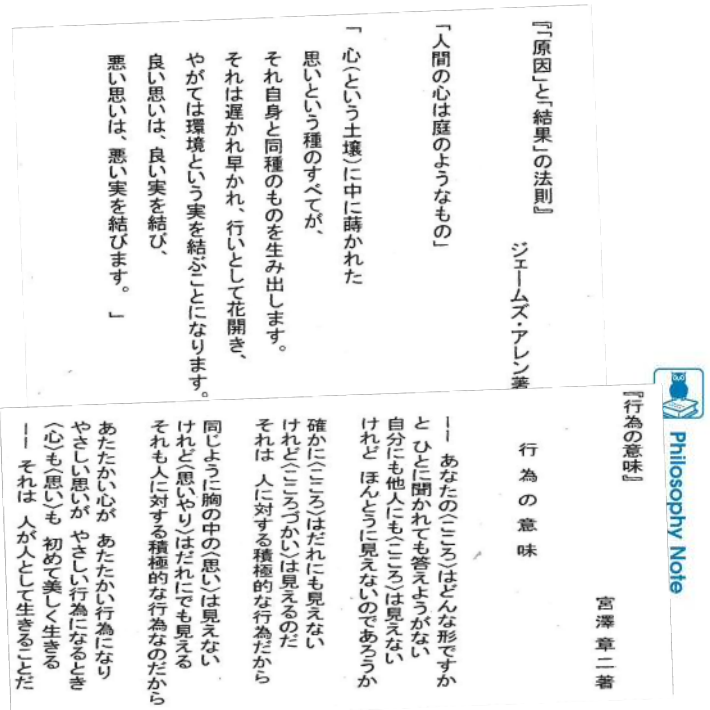 『「原因」と「結果」の法則』
ジェームズ・アレン著
「人間の心は庭のようなもの」
「 心〈という土壌〉に中に蒔かれた
思いという種のすべてが、
それ自身と同種のものを生み出します。
それは遅かれ早かれ、行いとして花開き、
やがては環境という実を結ぶことになります。
良い思いは、良い実を結び、
悪い思いは、悪い実を結びます。 」
Philosophy Note
『行為の意味』
宮澤章二著
行為の意味
―― あなたの〈こころ〉はどんな形ですか
と ひとに聞かれても答えようがない
自分にも他人にも〈こころ〉は見えない
けれど ほんとうに見えないのであろうか
確かに〈こころ〉はだれにも見えない
けれど〈こころづかい〉は見えるのだ
それは 人に対する積極的な行為だから
同じように胸の中の〈思い〉は見えない
けれど〈思いやり〉はだれにでも見える
それも人に対する積極的な行為なのだから
あたたかい心が あたたかい行為になり
やさしい思いが やさしい行為になるとき
〈心〉も〈思い〉も 初めて美しく生きる
―― それは 人が人として生きることだ